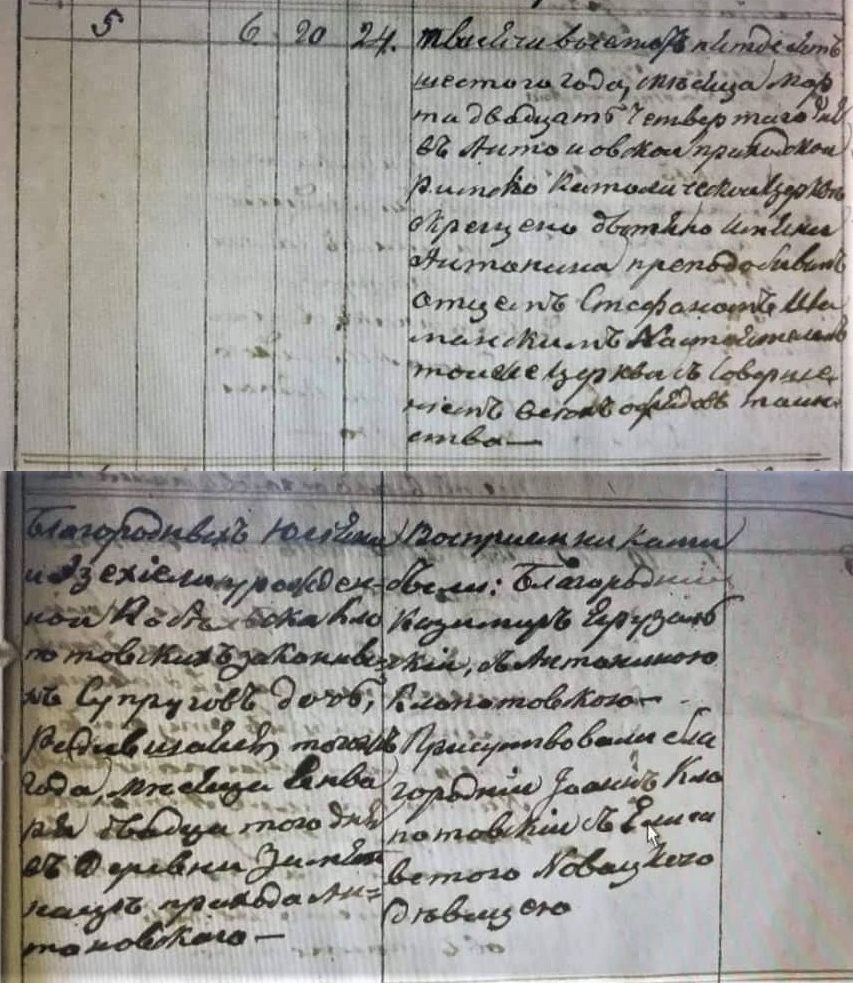 5 6 20 24. тысяча восемсотъ пятдесятъ
шестого года, мѣсяца Мар
та двадцать четвертаго дня
въ Антоновской приходской
Римско Католической церкви
окрещено дитя имени
Антонина преподобнымъ
отцемъ Стефаномъ Ши
манскимъ Настоятелемъ
тойже церкви съ соверше
ніемъ всехъ обрядовъ таин-
ства —
Благородныхъ
и Езехіели урожден-
ной Кло
потовскихъ законны
хъ Супруговъ дочь,
родившаяся того
года, мѣсяца Генва
ря двадцатого дня
въ Деревни
прихода Ан=
тоновскаго —
Восприемниками
были: Благородній
Казимиръ Ерузаль
скій, съ Антониною
Клопотовскою —
Присутствовали бла
городніи Іоаннъ Кло
потовскій съ Елиса
ветого Новацкого
Дѣвицею